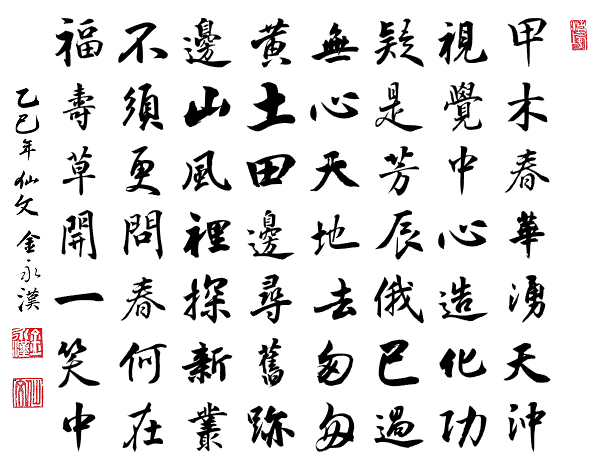 甲木春華湧天沖
視覺中心造化功
疑是芳辰俄已過
無心天地去匆匆
黃土田邊尋舊跡
邊山風裡探新叢
不須更問春何在
福壽草開一笑中
乙巳年仙文金永漢